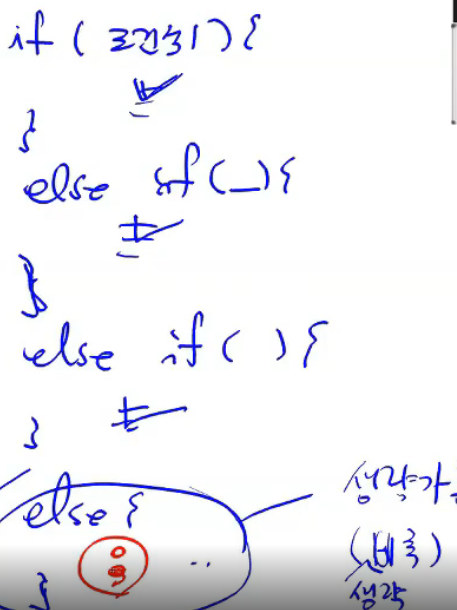 if ( 조건식1 ) {
}
else if ( _ ) {
}
else if ( ) {
}
else {
}
생략가
생략